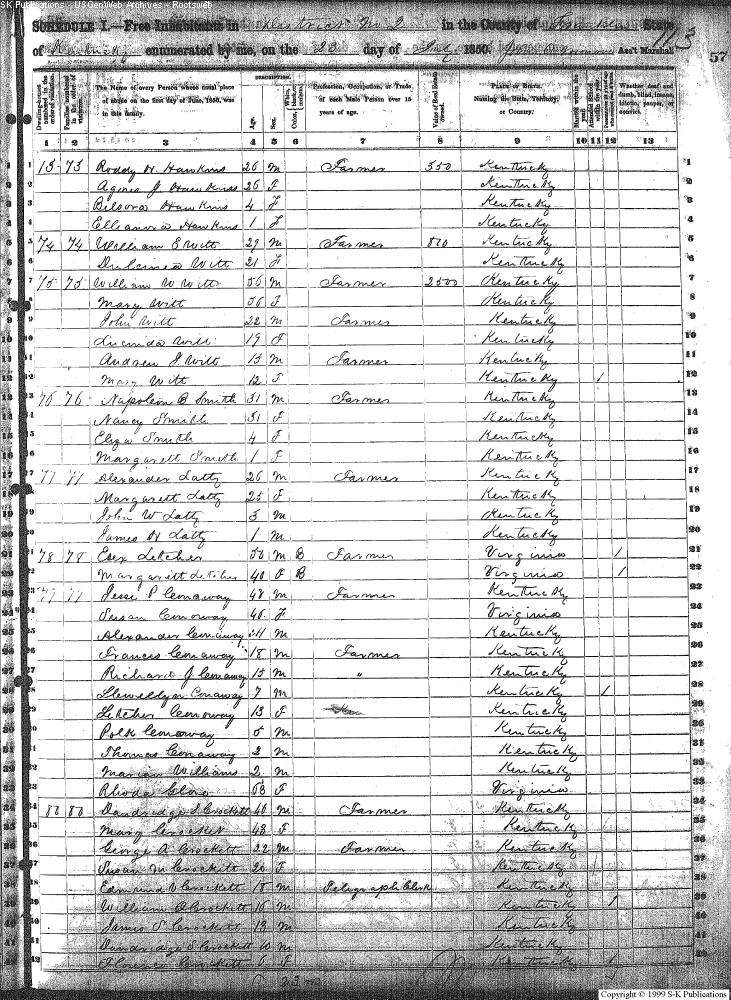 S-K Publications - USGenWeb Archives - Rootsweb
SCHEDULE I.—Free Inhabitants in District No 2 in the County of State
of Kentucky enumerated by me, on the 23 day of 1850. Ass't Marshall 113
57
DESCRIPTION.
Dwelling-houses numbered in the order of visitation.
Families numbered in the order of visitation.
The Name of every Person whose usual place of abode on the first day of June, 1850, was in this family.
Age.
Sex.
Profession, Occupation, or Trade of each Male Person over 15 years of age.
Value of Real Estate owned.
PLACE OF BIRTH. Naming the State, Territory, or Country.
Married within the year.
Whether deaf and dumb, blind, insane, idiotic, pauper, or convict.
1 2 3 4 5 6 7 8 9 10 11 12 13
1 73 73 Roddy H. Hawkins 26 M Farmer 350 Kentucky 1
2 Agnes J Hawkins 26 F Kentucky 2
3 Hawkins 4 F Kentucky 3
4 Elleanora Hawkins 1 F Kentucky 4
5 74 74 William S Witt 29 M Farmer 800 Kentucky 5
6 Dulcinea Witt 21 F Kentucky 6
7 75 75 William W Witt 56 M Farmer 2500 Kentucky 7
8 Mary Witt 56 F Kentucky 8
9 John Witt 22 M Farmer Kentucky 9
10 Lucinda Witt 19 F Kentucky 10
11 Andrew J Witt 15 M Farmer Kentucky 11
12 Mary Witt 12 F Kentucky / 12
13 76 76 Napoleon B Smith 31 M Farmer Kentucky 13
14 Nancy Smith 31 F Kentucky 14
15 Eliza Smith 4 F Kentucky 15
16 Margarett Smith 1 F Kentucky 16
17 77 77 Alexander Latty 26 M Farmer Kentucky 17
18 Margarett Latty 25 F Kentucky 18
19 John W Latty 3 M Kentucky 19
20 James H Latty 1 M Kentucky 20
21 78 78 Esex Letcher 50 M B Farmer Virginia / 21
22 Margarett Letcher 40 F B Virginia / 22
23 79 79 Jesse P Conaway 48 M Farmer Kentucky 23
24 Susan Conoway 46 F Virginia 24
25 Alexander Conaway 11 M Kentucky 25
26 Francis Conaway 18 M Farmer Kentucky 26
27 Richard J Conaway 15 M " Kentucky 27
28 Llewellyn Conaway 7 M Kentucky / 28
29 Letcher Conoway 13 F Kentucky 29
30 Polk Conoway 5 M Kentucky 30
31 Thomas Conaway 2 M Kentucky 31
32 Marian Williams 2 M Kentucky 32
33 Rhoda 63 F Virginia 33
34 80 80 Dandridge S Crockett 46 M Farmer Kentucky 34
35 Mary Crockett 43 F Kentucky 35
36 George A Crockett 22 M Farmer Kentucky 36
37 Susan M Crockett 20 F Kentucky 37
38 Edmund V Crockett 18 M Telegraph Clerk Kentucky 38
39 William O Crockett 16 M Kentucky / 39
40 James S Crockett 13 M Kentucky 40
41 Dandridge S Crockett 10 M Kentucky 41
42 Florence Crockett 6 F Kentucky / 42
23 m
Copyright © 1999 S-K Publications